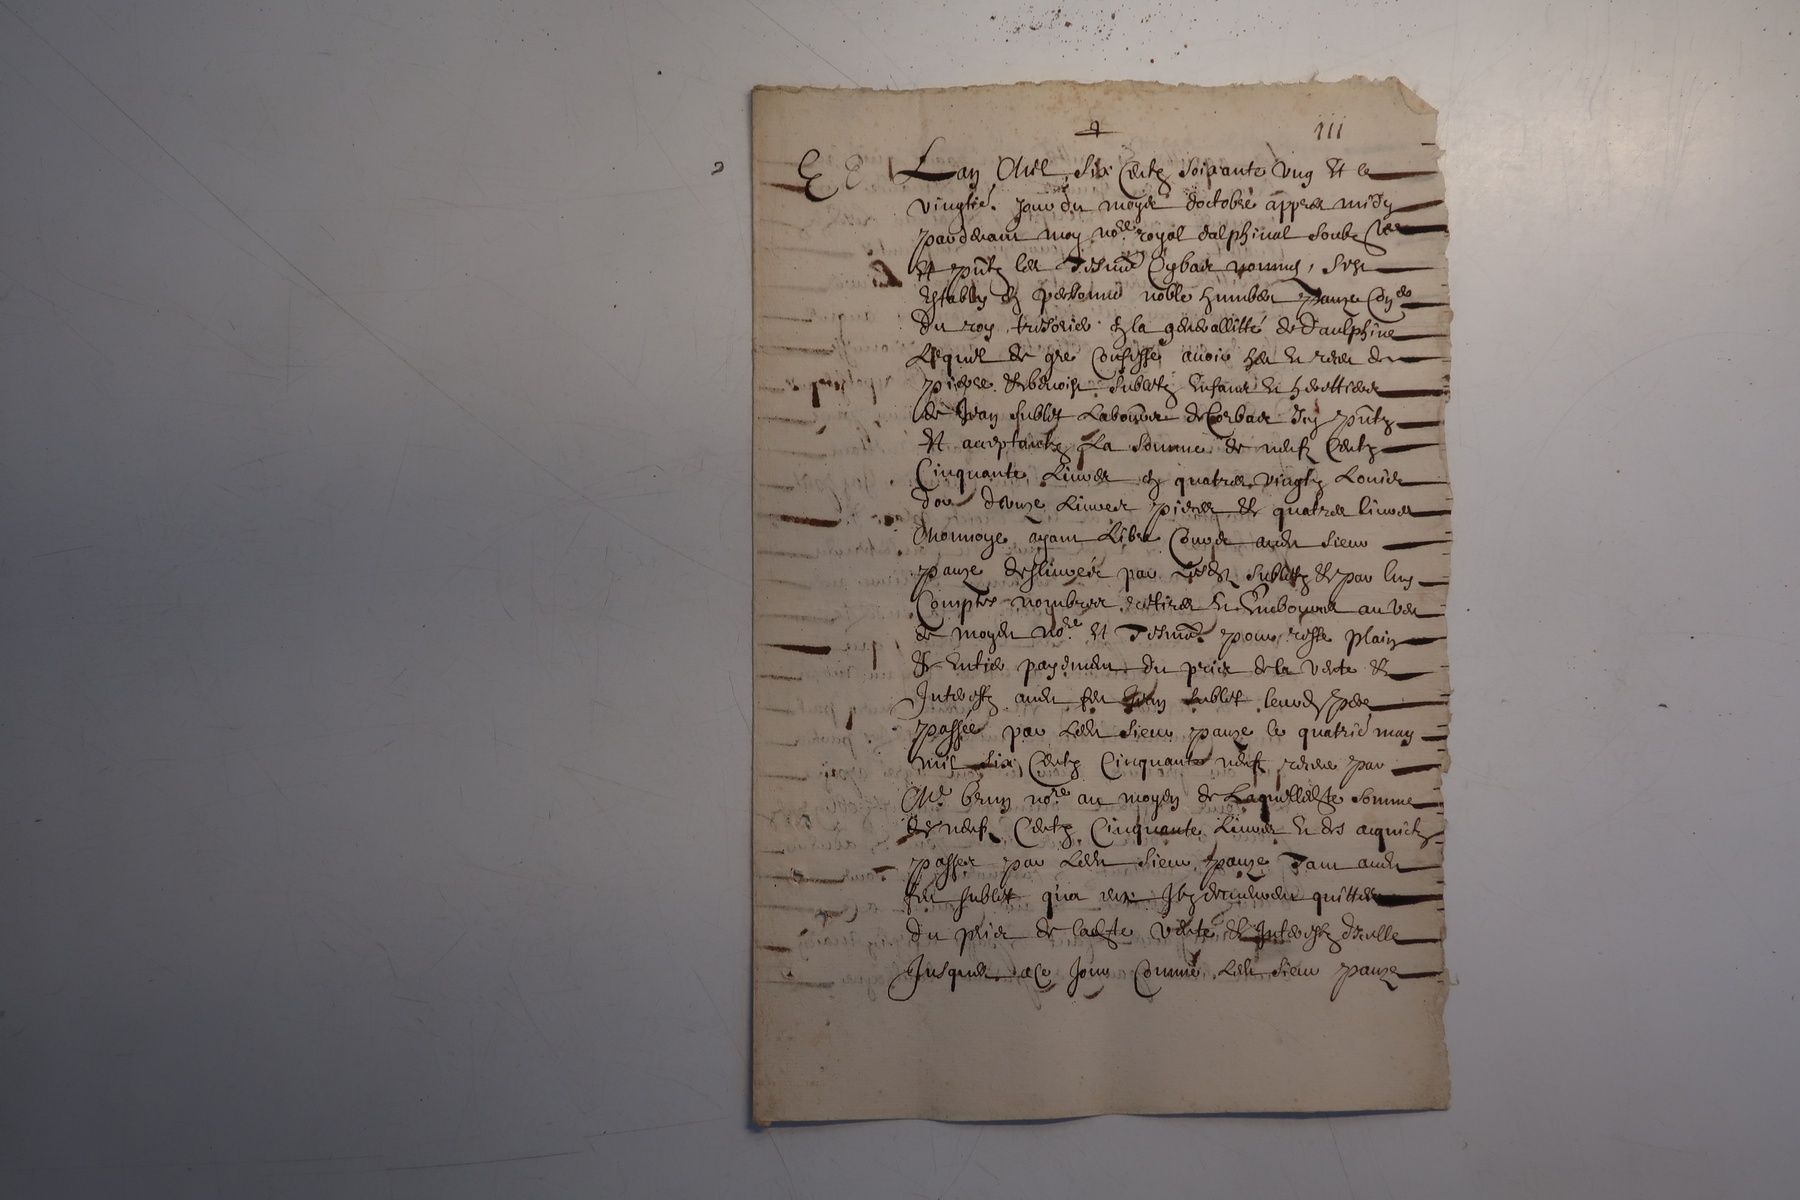 III
Lan Mil Six Centz Soixante Ung Et le
vingtie. Jour du moys doctobre appres midy
pardevant moy no.re royal dalphinal soubz
Et pntz les Tesm. Cybas nommes, Sest
Estably En personne noble humber Panze
du roy tresorier En la generallitté de Daulphine
Lequel de gre Confesse avoir heu Et receu de
pierre Et benoist Sublet Enfans Et herettiers
de Jean Sublet Laboureur de Corbas Icy pntz
Et acceptantz La Somme de neufz Centz
Cinquante Livres En quatres vingtz Louis
dor donze Livres pieces Et quatres livres
Monnoye ayant Libre Cours audit Sieur
panze deslivrés par Lesd Subletz Et par luy
Comptes nombrees rettirés Et Embources au veu
de moydit no.re Et Tesm. pour reste plain
Et Entier payement du prix de la vente Et
Interestz audit feu Jean Sublet leurd pere
passée par Ledit Sieur panze le quatrie may
mil Six Centz Cinquante neuf receue par
Me. brun no.re au moyen de Laquelle dte Somme
de neufz Centz Cinquante Livres Et des acquictz
passes par Ledit Sieur panze Tant audit
feu Sublet qua eux Ilz demeurent quittes
du prix de ladte vente Et Interestz dicelle
Jusques a Ce Jour Comme Ledit Sieur panze